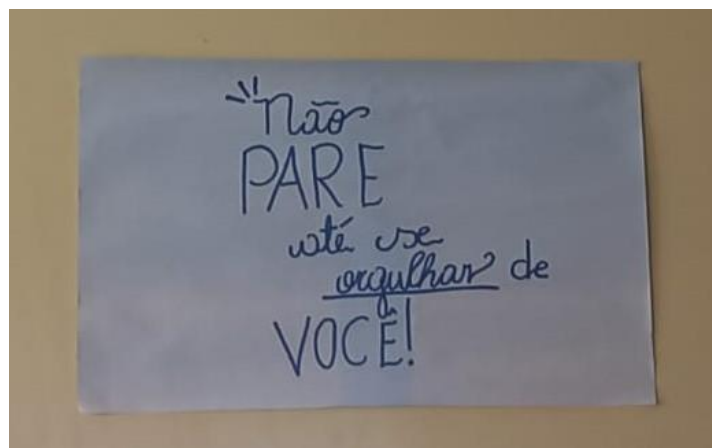 Não
PARE
até se
orgulhar de
VOCÊ!